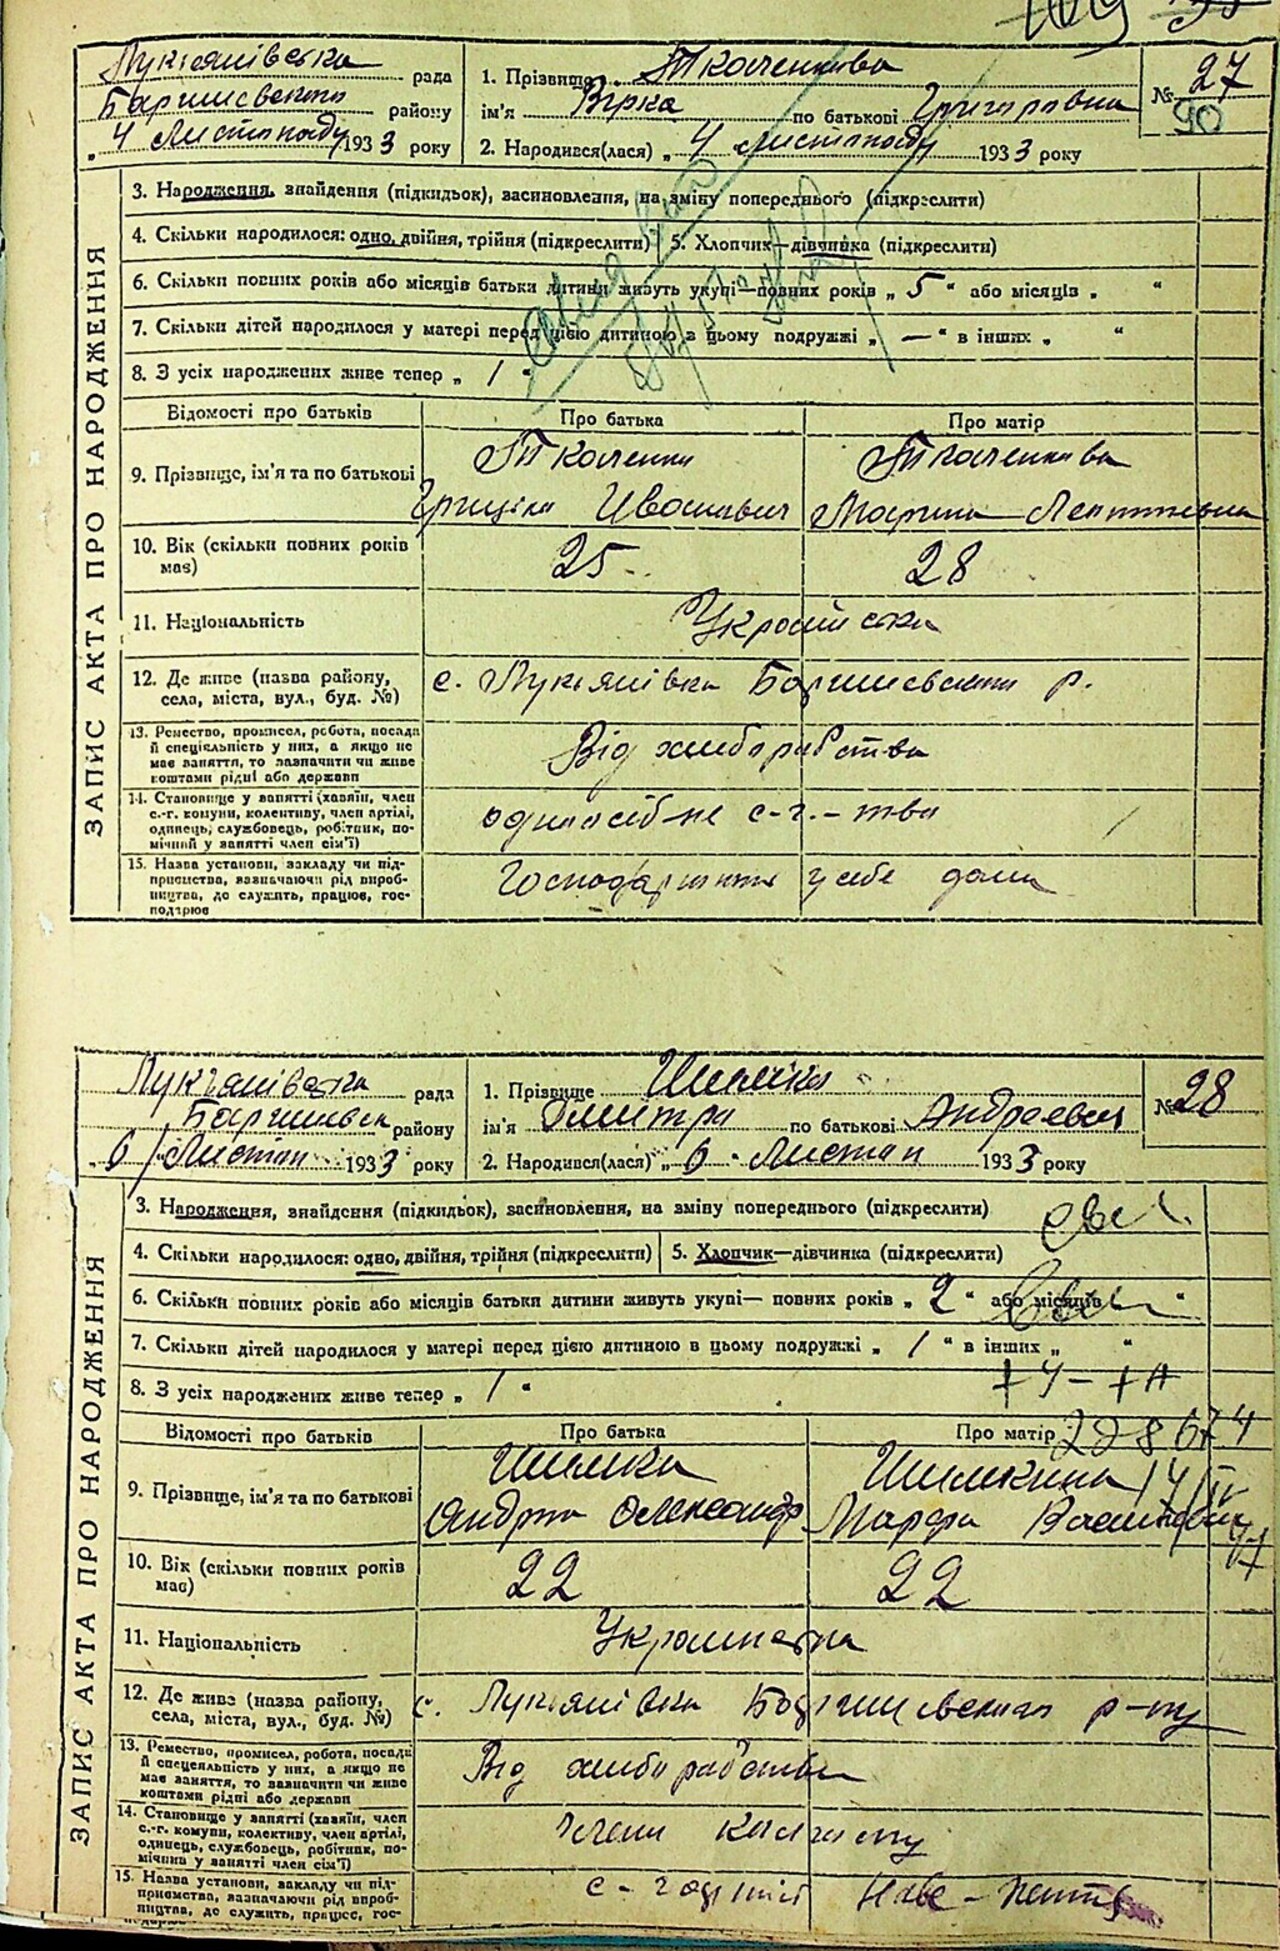 Лукіянівська рада
Баришевського району
„ 4 Листопаду 1933 року
1. Прізвище Ткаченкова
ім'я Вірка по батькові Григоровна
2. Народився(лася) „ 4 листопаду 1933 року
№ 27
90
ЗАПИС АКТА ПРО НАРОДЖЕННЯ
3. Народження, знайдення (підкидьок), засиновлення, на зміну попереднього (підкреслити)
4. Скільки народилося: одно, двійня, трійня (підкреслити) 5. Хлопчик—дівчинка (підкреслити)
6. Скільки повних років або місяців батьки дитини живуть укупі—повних років „ 5 “ або місяців „ “
7. Скільки дітей народилося у матері перед цією дитиною в цьому подружжі „ — “ в інших „ “
8. З усіх народжених живе тепер „ 1 “
Відомості про батьків Про батька Про матір
9. Прізвище, ім'я та по батькові
Ткаченко Ткаченкова
Грицько Ивонович Марина
10. Вік (скільки повних років має) 25 28
11. Національність Україйська
12. Де живе (назва району, села, міста, вул., буд. №) с. Лукіянівка Баришевського р.
13. Ремество, промисел, робота, посада
й спеціяльність у них, а якщо не
має заняття, то зазначити чи живе
коштами рідні або держави
Від хлиборобства
14. Становище у занятті (хазяїн, член
с.-г. комуни, колективу, член артілі,
одинець, службовець, робітник, по-
мічний у занятті член сім'ї)
одноосібне с-г.-тво
15. Назва установи, закладу чи під-
приємства, зазначаючи рід вироб-
ництва, де служить, працює, гос-
подарює
у себе дома
Лукіянівська рада
Баришевськ району
„ 6 “ Листоп 1933 року
1. Прізвище Шилїко
ім'я Дмитро по батькові Андреевич
2. Народився(лася) „ 6 Листоп 1933 року
№ 28
ЗАПИС АКТА ПРО НАРОДЖЕННЯ
3. Народження, знайдення (підкидьок), засиновлення, на зміну попереднього (підкреслити)
4. Скільки народилося: одно, двійня, трійня (підкреслити) 5. Хлопчик—дівчинка (підкреслити)
6. Скільки повних років або місяців батьки дитини живуть укупі— повних років „ 2 “ або місяців “
7. Скільки дітей народилося у матері перед цією дитиною в цьому подружжі „ 1 “ в інших „ “
8. З усіх народжених живе тепер „ 1 “
Відомості про батьків Про батька Про матір
9. Прізвище, ім'я та по батькові
Шилика Шиликина
Андрій Олександр Марфа
10. Вік (скільки повних років має) 22 22
11. Національність
12. Де живе (назва району, села, міста, вул., буд. №) с. Лукіянівка Баришевського р-ну
13. Ремество, промисел, робота, посада
й спецеяльність у них, а якщо не
має заняття, то зазначити чи живе
коштами рідні або держави
Від хлиборобства
14. Становище у занятті (хазяїн, член
с.-г. комуни, колективу, член артілі,
одинець, службовець, робітник, по-
мічний у занятті член сім'ї)
член колгоспу
15. Назва установи, закладу чи під-
приємства, зазначаючи рід вироб-
ництва, де служить, працює, гос-